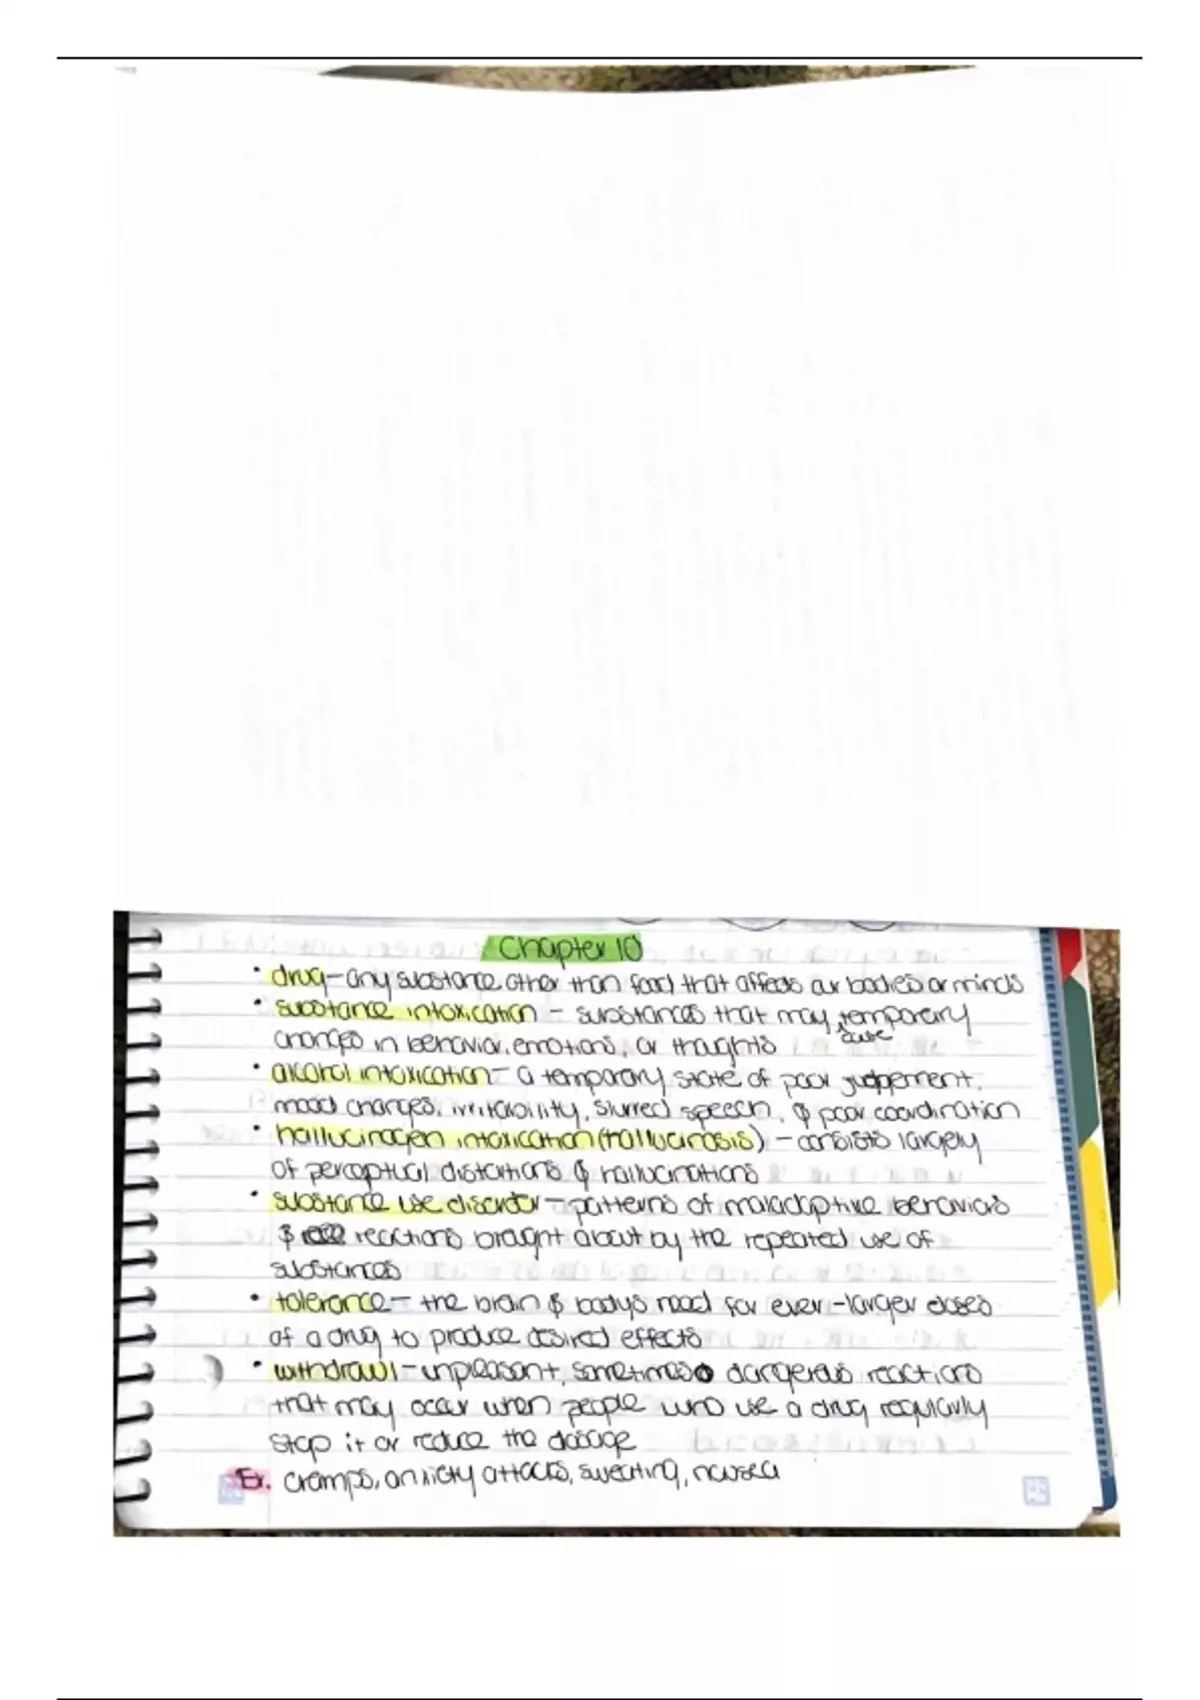 Chapter 10
• drug - any substance other than food that affects our bodies or minds
• substance intoxication - substances that may temporary
cause
changes in behavior, emotions, or thoughts
• alcohol intoxication - a temporary state of poor
mood changes, irritability, slurred speech, & poor coordination
• hallucinogen intoxication (hallucinosis) - consists largely
of perceptual distortions & hallucinations
• substance use disorder - patterns of maladaptive behaviors
& reactions brought about by the repeated use of
substances
• tolerance - the brain & body's need for ever-larger doses
of a drug to produce desired effects
• withdrawl - unpleasant, sometimes dangerous reactions
that may occur when people who use a drug regularly
stop it or reduce the dosage
Ex. cramps, anxiety attacks, sweating, nausea